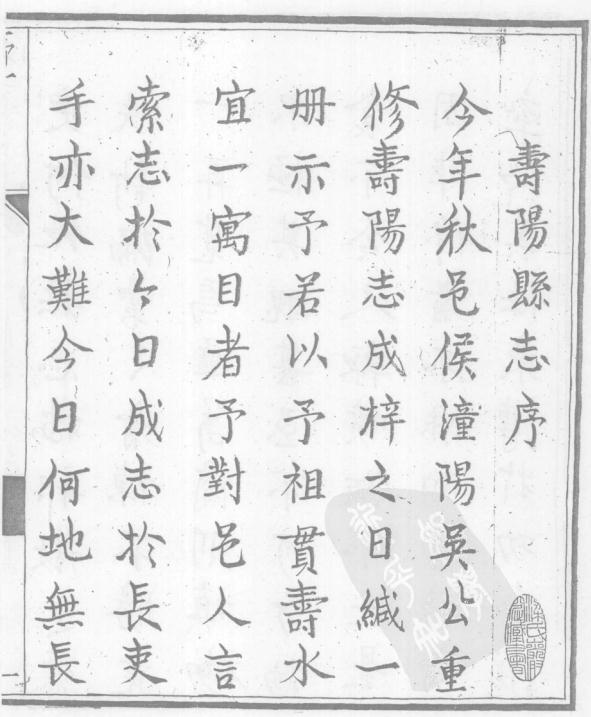 壽陽縣志序
今年秋邑侯潼陽吳公重
修壽陽志成梓之日緘一
冊示予若以予祖貫壽水
宜一寓目者予對邑人言
索志於今日成志於長吏
手亦大難今日何地無長